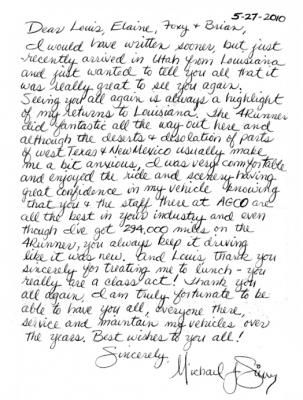 5-27-2010
Dear Louis, Elaine, Foxy & Brian,
I would have written sooner, but just
recently arrived in Utah from Louisiana
and just wanted to tell you all that it
was really great to see you again.
Seeing you all again is always a highlight
of my returns to Louisiana. The 4Runner
did fantastic all the way out here and
although the deserts & desolation of parts
of west Texas & New Mexico usually make
me a bit anxious, I was very comfortable
and enjoyed the ride and scenery having
great confidence in my vehicle knowing
that you & the staff there at AGCO are
all the best in your industry and even
though I've got 294,000 miles on the
4Runner, you always keep it driving
like it was new. And Louis, thank you
sincerely for treating me to lunch - you
really are a class act! Thank you
all again, I am truly fortunate to be
able to have you all, everyone there,
service and maintain my vehicles over
the years. Best wishes to you all!
Sincerely,
Michael J.